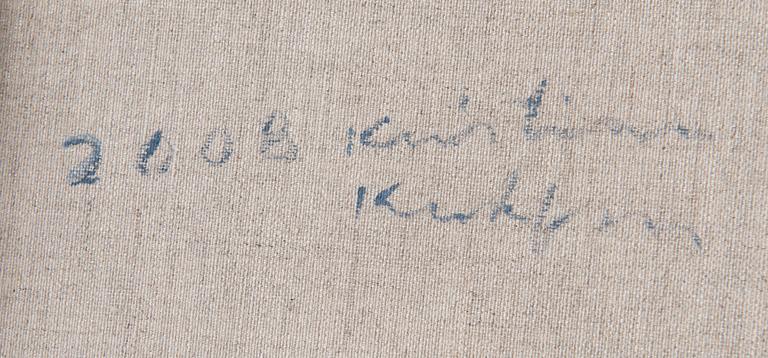 2008 Kristian
Krokfors